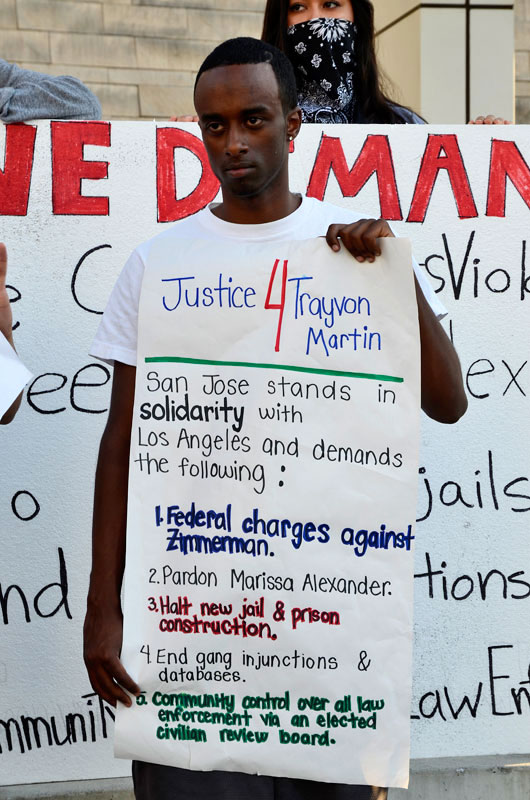 WE DEMAN
Justice 4 Trayvon
Martin
San Jose stands in
solidarity with
Los Angeles and demands
the following :
1. Federal charges against
Zimmerman.
2. Pardon Marissa Alexander.
3. Halt new jail & prison
construction.
4. End gang injunctions &
databases.
5. Community control over all law
enforcement via an elected
civilian review board.
jails